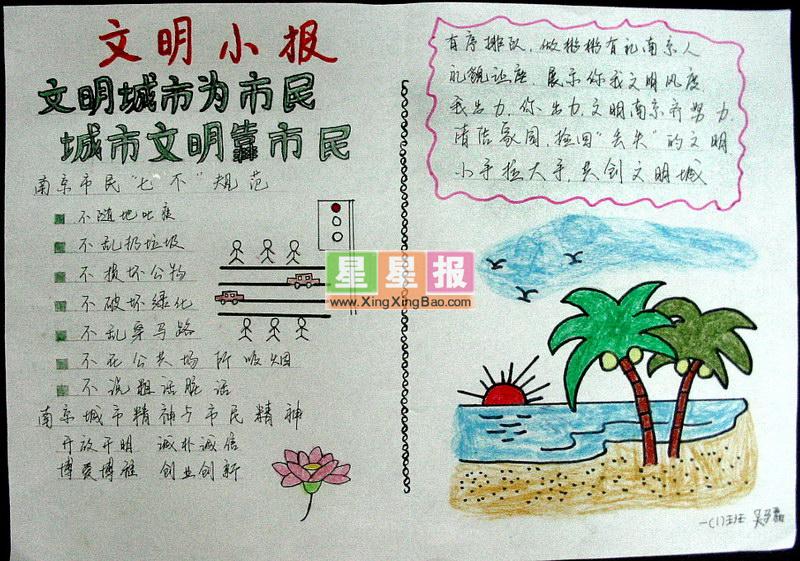 文明小报
文明城市为市民
城市文明靠市民
南京市民"七不"规范
不随地吐痰
不乱扔垃圾
不损坏公物
不破坏绿化
不乱穿马路
不在公共场所吸烟
不说粗话脏话
南京城市精神与市民精神
开放开明 诚朴诚信
博爱博雅 创业创新
有序排队,做彬彬有礼南京人
礼貌让座,展示你我文明风度
我出力,你出力,文明南京齐努力
清洁家园,捡回"丢失"的文明
小手拉大手,共创文明城
星星报
www.XingXingBao.com
一(1)班 吴子